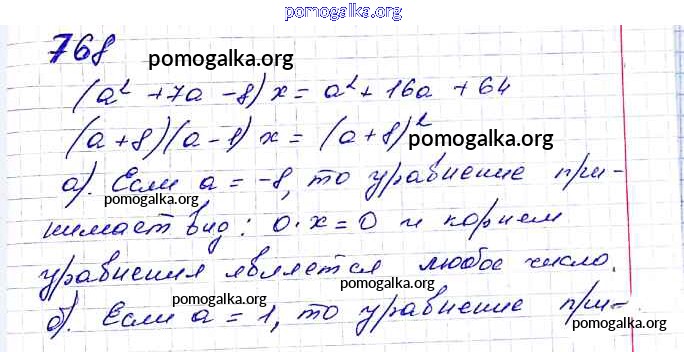 pomogalka.org
768
pomogalka.org
(a² + 7a - 8)x = a² + 16a + 64
(a + 8)(a - 1)x = (a + 8)²
pomogalka.org
а). Если a = -8, то уравнение при-
pomogalka.org
нимает вид: 0·x = 0 и корнем
уравнения является любое число.
pomogalka.org
б). Если a = 1, то уравнение при-
pomogalka.org